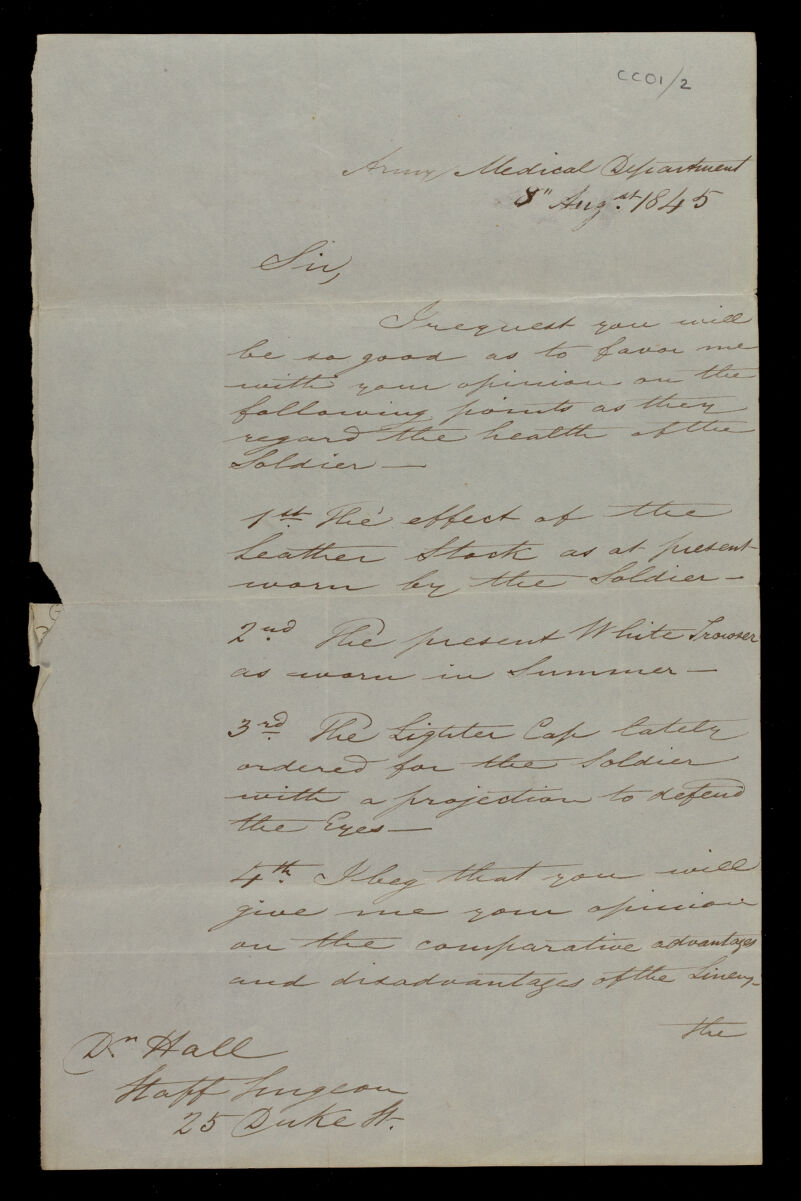 CC01/2
Army Medical Department
8" Augst. 1845
Sir,
I request you will
be so good as to favor me
with your opinion on the
following points as they
regard the health of the
Soldier —
1st. The effect of the
Leather Stock as at present
worn by the Soldier —
2nd. The present White Trowser
as worn in Summer —
3rd. The Lighter Cap lately
ordered for the Soldier
with a projection to defend
the Eyes —
4th. I beg that you will
give me your opinion
on the comparative advantages
and disadvantages of the Linen,
the
Dr. Hall
Staff Surgeon
25 Duke St.